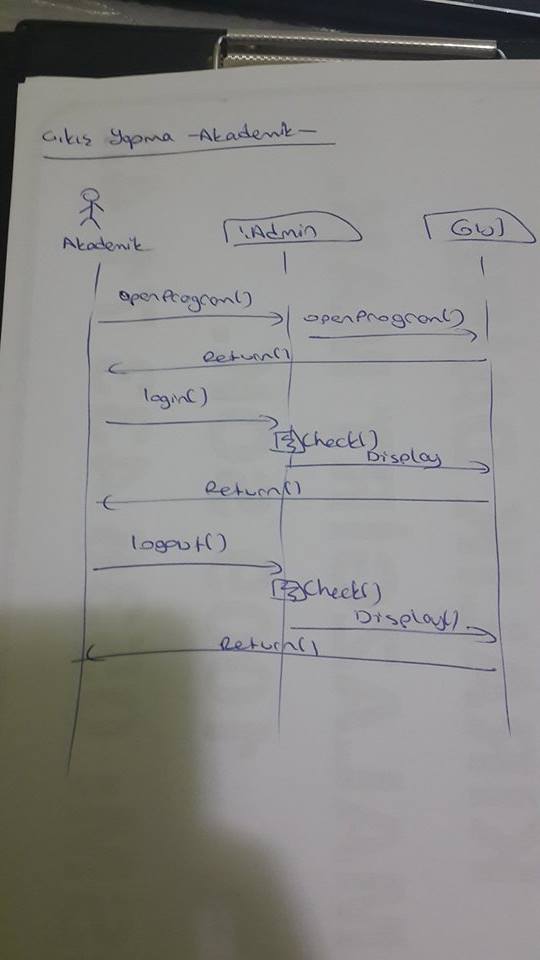 Çıkış Yapma -Akademik-
Akademik
1.Admin
GUI
openProgram()
openProgram()
Return()
login()
Check()
Display
Return()
logout()
Check()
Display()
Return()